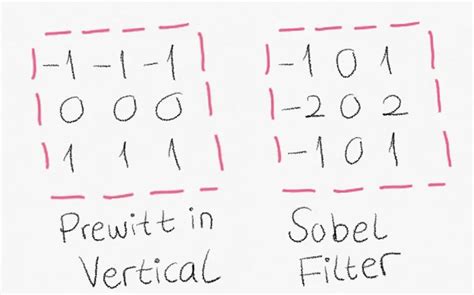 -1 -1 -1
0 0 0
1 1 1
Prewitt in
Vertical
-1 0 1
-2 0 2
-1 0 1
Sobel
Filter